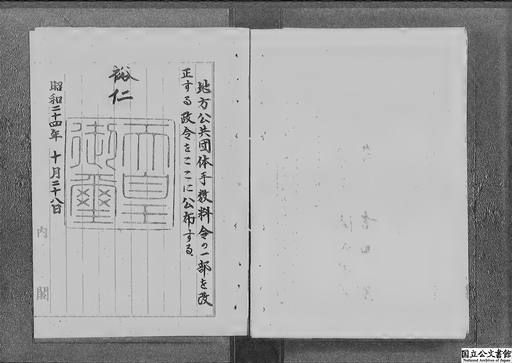 地方公共団体手数料令の一部を改
正する政令をここに公布する
裕仁
天皇
御璽
昭和二十四年 十月二十八日
内閣
国立公文書館
National Archives of Japan